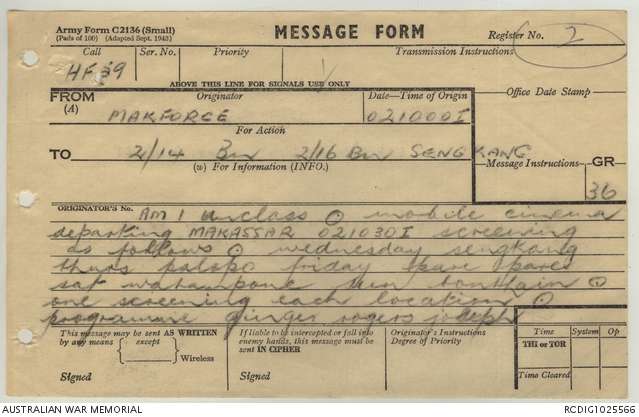 Army Form C2136 (Small)
(Pads of 100) (Adapted Sept. 1942)
MESSAGE FORM
Register No. 2
Call Ser. No. Priority Transmission Instructions
HF 39
ABOVE THIS LINE FOR SIGNALS USE ONLY
FROM
(A)
Originator
Date—Time of Origin
Office Date Stamp
MAKFORCE 021000I
For Action
TO 2/14 Bn 2/16 Bn SENGKANG
(W) For Information (INFO.)
Message Instructions GR
36
ORIGINATOR'S No. AM 1 unclass mobile cinema
departing MAKASSAR 021030I screening
as follows wednesday sengkang
thurs palopo friday pare pare
sat watampone sun bonthain
one screening each location
programme ginger rogers
This message may be sent AS WRITTEN
by any means except
Wireless
Signed
If liable to be intercepted or fall into
enemy hands, this message must be
sent IN CIPHER
Signed
Originator's Instructions
Degree of Priority
Time System Op
THI or TOR
Time Cleared
AUSTRALIAN WAR MEMORIAL
RCDIG1025566